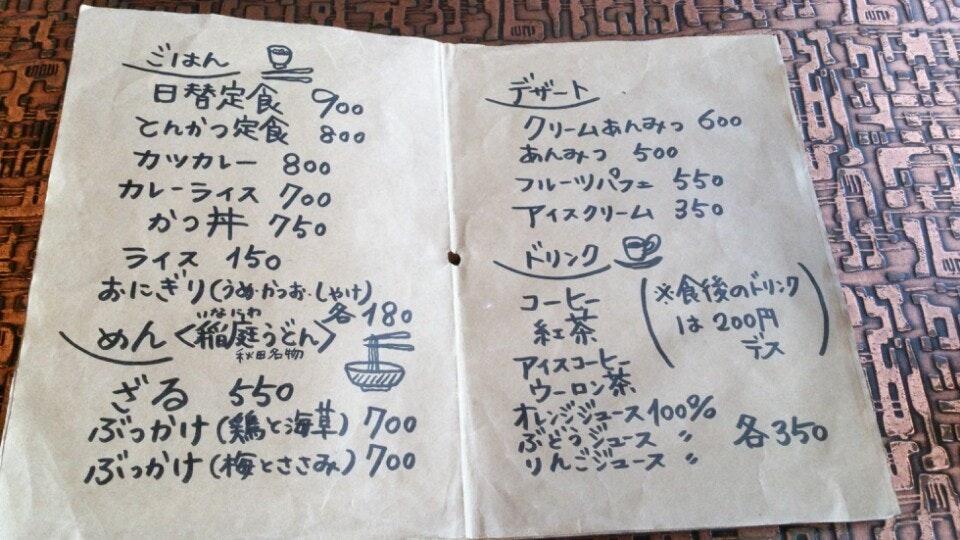 ごはん
日替定食 900
とんかつ定食 800
カツカレー 800
カレーライス 700
かつ丼 750
ライス 150
おにぎり(うめ・かつお・しゃけ)
各180
めん〈稲庭うどん〉
いなにわ
秋田名物
ざる 550
ぶっかけ(鶏と海草) 700
ぶっかけ(梅とささみ) 700
デザート
クリームあんみつ 600
あんみつ 500
フルーツパフェ 550
アイスクリーム 350
ドリンク
(※食後のドリンク
は200円
デス)
コーヒー
紅茶
アイスコーヒー
ウーロン茶
オレンジジュース100%
ぶどうジュース 〃
りんごジュース 〃
各350